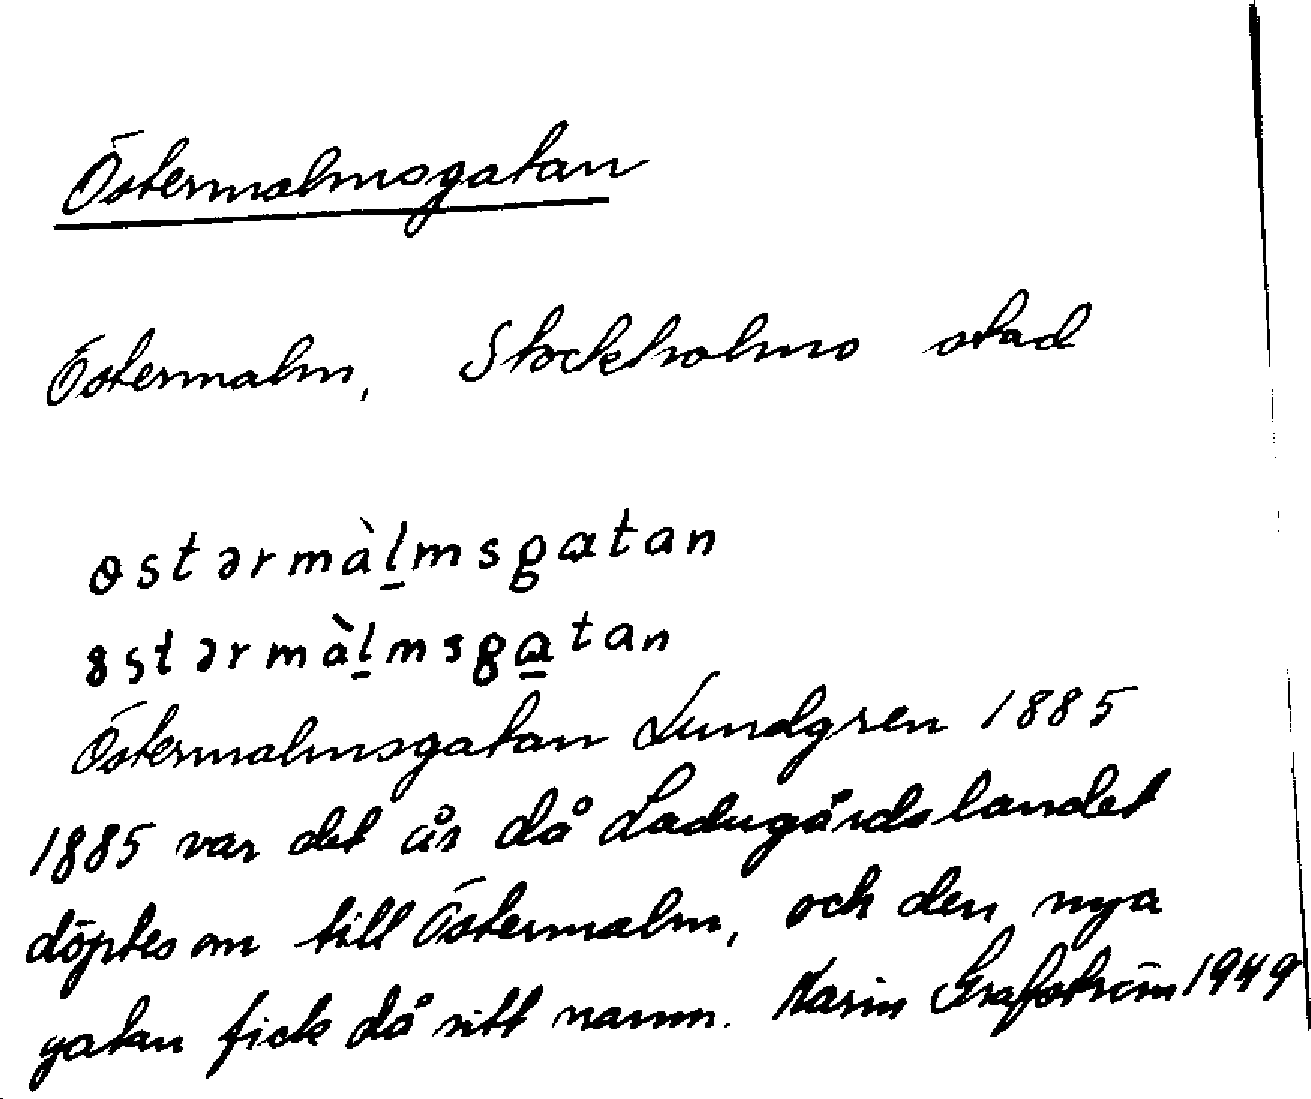 Östermalmsgatan
Östermalm, Stockholms stad
ɵstərmàl̲msgatan
8stərmàl̲msga̲tan
Östermalmsgatan Lundgren 1885
1885 var det år då Ladugårdslandet
döptes om till Östermalm, och den nya
gatan fick då sitt namn. Karin Grafström 1949